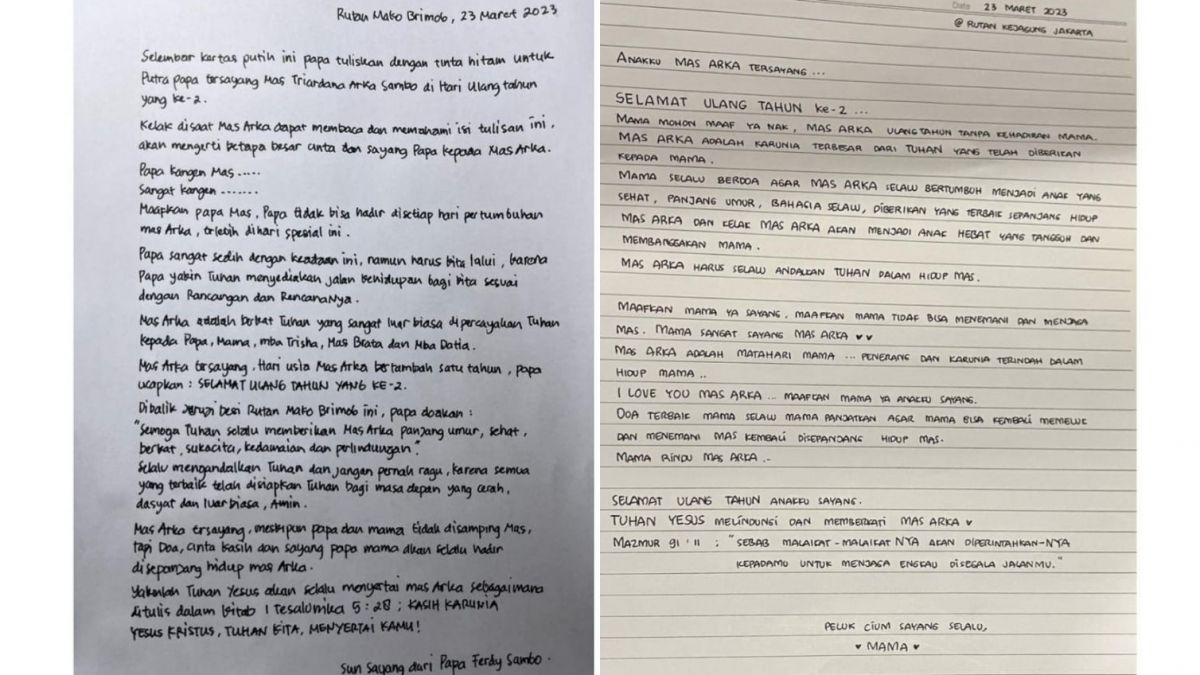 Rutan Mako Brimob, 23 Maret 2023
Selembar kertas putih ini papa tuliskan dengan tinta hitam untuk
Putra papa tersayang Mas Triardana Arka Sambo di Hari Ulang tahun
yang ke-2.
Kelak disaat Mas Arka dapat membaca dan memahami isi tulisan ini,
akan mengerti betapa besar cinta dan sayang Papa kepada Mas Arka.
Papa kangen Mas.....
Sangat kangen .......
Maapkan papa Mas, Papa tidak bisa hadir disetiap hari pertumbuhan
mas Arka, trlebih dihari spesial ini.
Papa sangat sedih dengan keadaan ini, namun harus kita lalui, karena
Papa yakin Tuhan menyediakan jalan kehidupan bagi kita sesuai
dengan Rancangan dan RencanaNya.
Mas Arka adalah berkat Tuhan yang sangat luar biasa dipercayakan Tuhan
kepada Papa, Mama, mba Trisha, Mas Brata dan Mba Datia.
Mas Arka tersayang, Hari usia Mas Arka bertambah satu tahun, papa
ucapkan : SELAMAT ULANG TAHUN YANG KE-2.
Dibalik Jeruji besi Rutan Mako Brimob ini, papa doakan :
"Semoga Tuhan selalu memberikan Mas Arka panjang umur, sehat,
berkat, sukacita, kedamaian dan perlindungan".
Selalu mengandalkan Tuhan dan jangan pernah ragu, karena semua
yang terbaik telah disiapkan Tuhan bagi masa depan yang cerah,
dasyat dan luar biasa, Amin.
Mas Arka trsayang, meskipun papa dan mama tidak disamping Mas,
tapi Doa, cinta kasih dan sayang papa mama akan selalu hadir
disepanjang hidup mas Arka.
Yakinlah Tuhan Yesus akan selalu menyertai mas Arka sebagaimana
ditulis dalam kitab 1 Tesalonika 5:28 ; KASIH KARUNIA
YESUS KRISTUS, TUHAN KITA, MENYERTAI KAMU!
Sun sayang dari Papa Ferdy Sambo.
Date 23 MARET 2023
@ RUTAN KEJAGUNG JAKARTA
ANAKKU MAS ARKA TERSAYANG ...
SELAMAT ULANG TAHUN ke-2 ...
MAMA MOHON MAAF YA NAK, MAS ARKA ULANGTAHUN TANPA KEHADIRAN MAMA.
MAS ARKA ADALAH KARUNIA TERBESAR DARI TUHAN YANG TELAH DIBERIKAN
KEPADA MAMA.
MAMA SELALU BERDOA AGAR MAS ARKA SELALU BERTUMBUH MENJADI ANAK YANG
SEHAT, PANJANG UMUR, BAHAGIA SELALU, DIBERIKAN YANG TERBAIK SEPANJANG HIDUP
MAS ARKA DAN KELAK MAS ARKA AKAN MENJADI ANAK HEBAT YANG TANGGUH DAN
MEMBANGGAKAN MAMA.
MAS ARKA HARUS SELALU ANDALKAN TUHAN DALAM HIDUP MAS.
MAAFKAN MAMA YA SAYANG, MAAFKAN MAMA TIDAK BISA MENEMANI DAN MENJAGA
MAS. MAMA SANGAT SAYANG MAS ARKA ♥♥
MAS ARKA ADALAH MATAHARI MAMA ... PENERANG DAN KARUNIA TERINDAH DALAM
HIDUP MAMA ..
I LOVE YOU MAS ARKA ... MAAFKAN MAMA YA ANAKKU SAYANG.
DOA TERBAIK MAMA SELALU MAMA PANJATKAN AGAR MAMA BISA KEMBALI MEMELUK
DAN MENEMANI MAS KEMBALI DISEPANJANG HIDUP MAS.
MAMA RINDU MAS ARKA ..
SELAMAT ULANG TAHUN ANAKKU SAYANG.
TUHAN YESUS MELINDUNGI DAN MEMBERKATI MAS ARKA ♥
MAZMUR 91 : 11 : "SEBAB MALAIKAT-MALAIKAT NYA AKAN DIPERINTAHKAN-NYA
KEPADAMU UNTUK MENJAGA ENGKAU DISEGALA JALANMU."
PELUK CIUM SAYANG SELALU,
♥ MAMA ♥